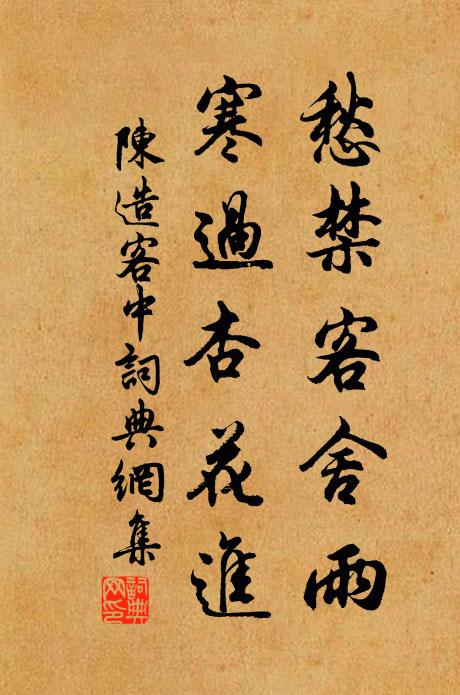 愁禁客舍雨
寒過杏花進
陳造客中詞典網集
詞典
网印